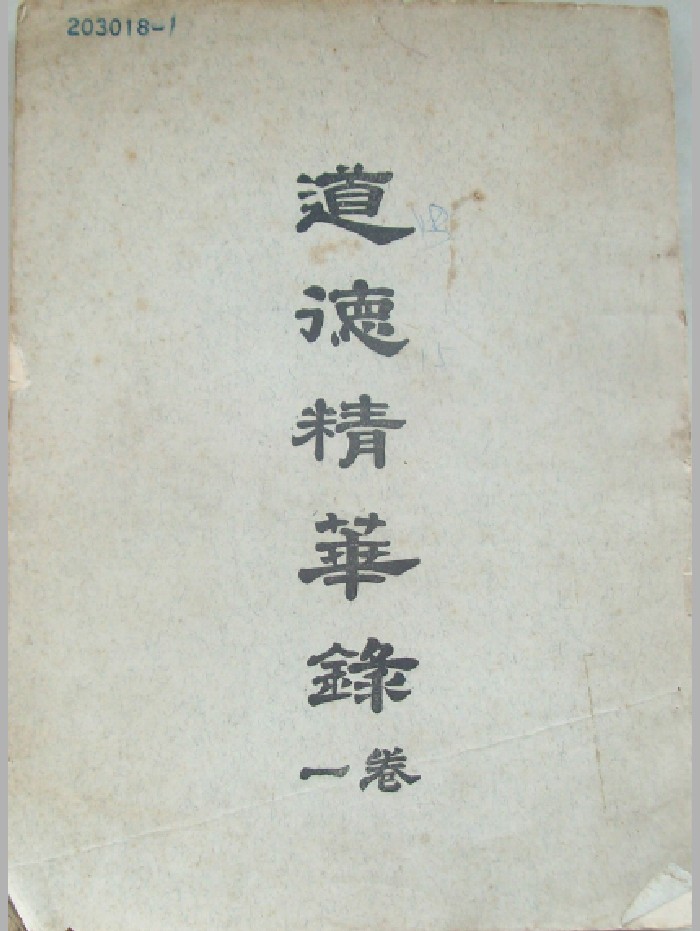 203018-1
道德精華錄
卷一